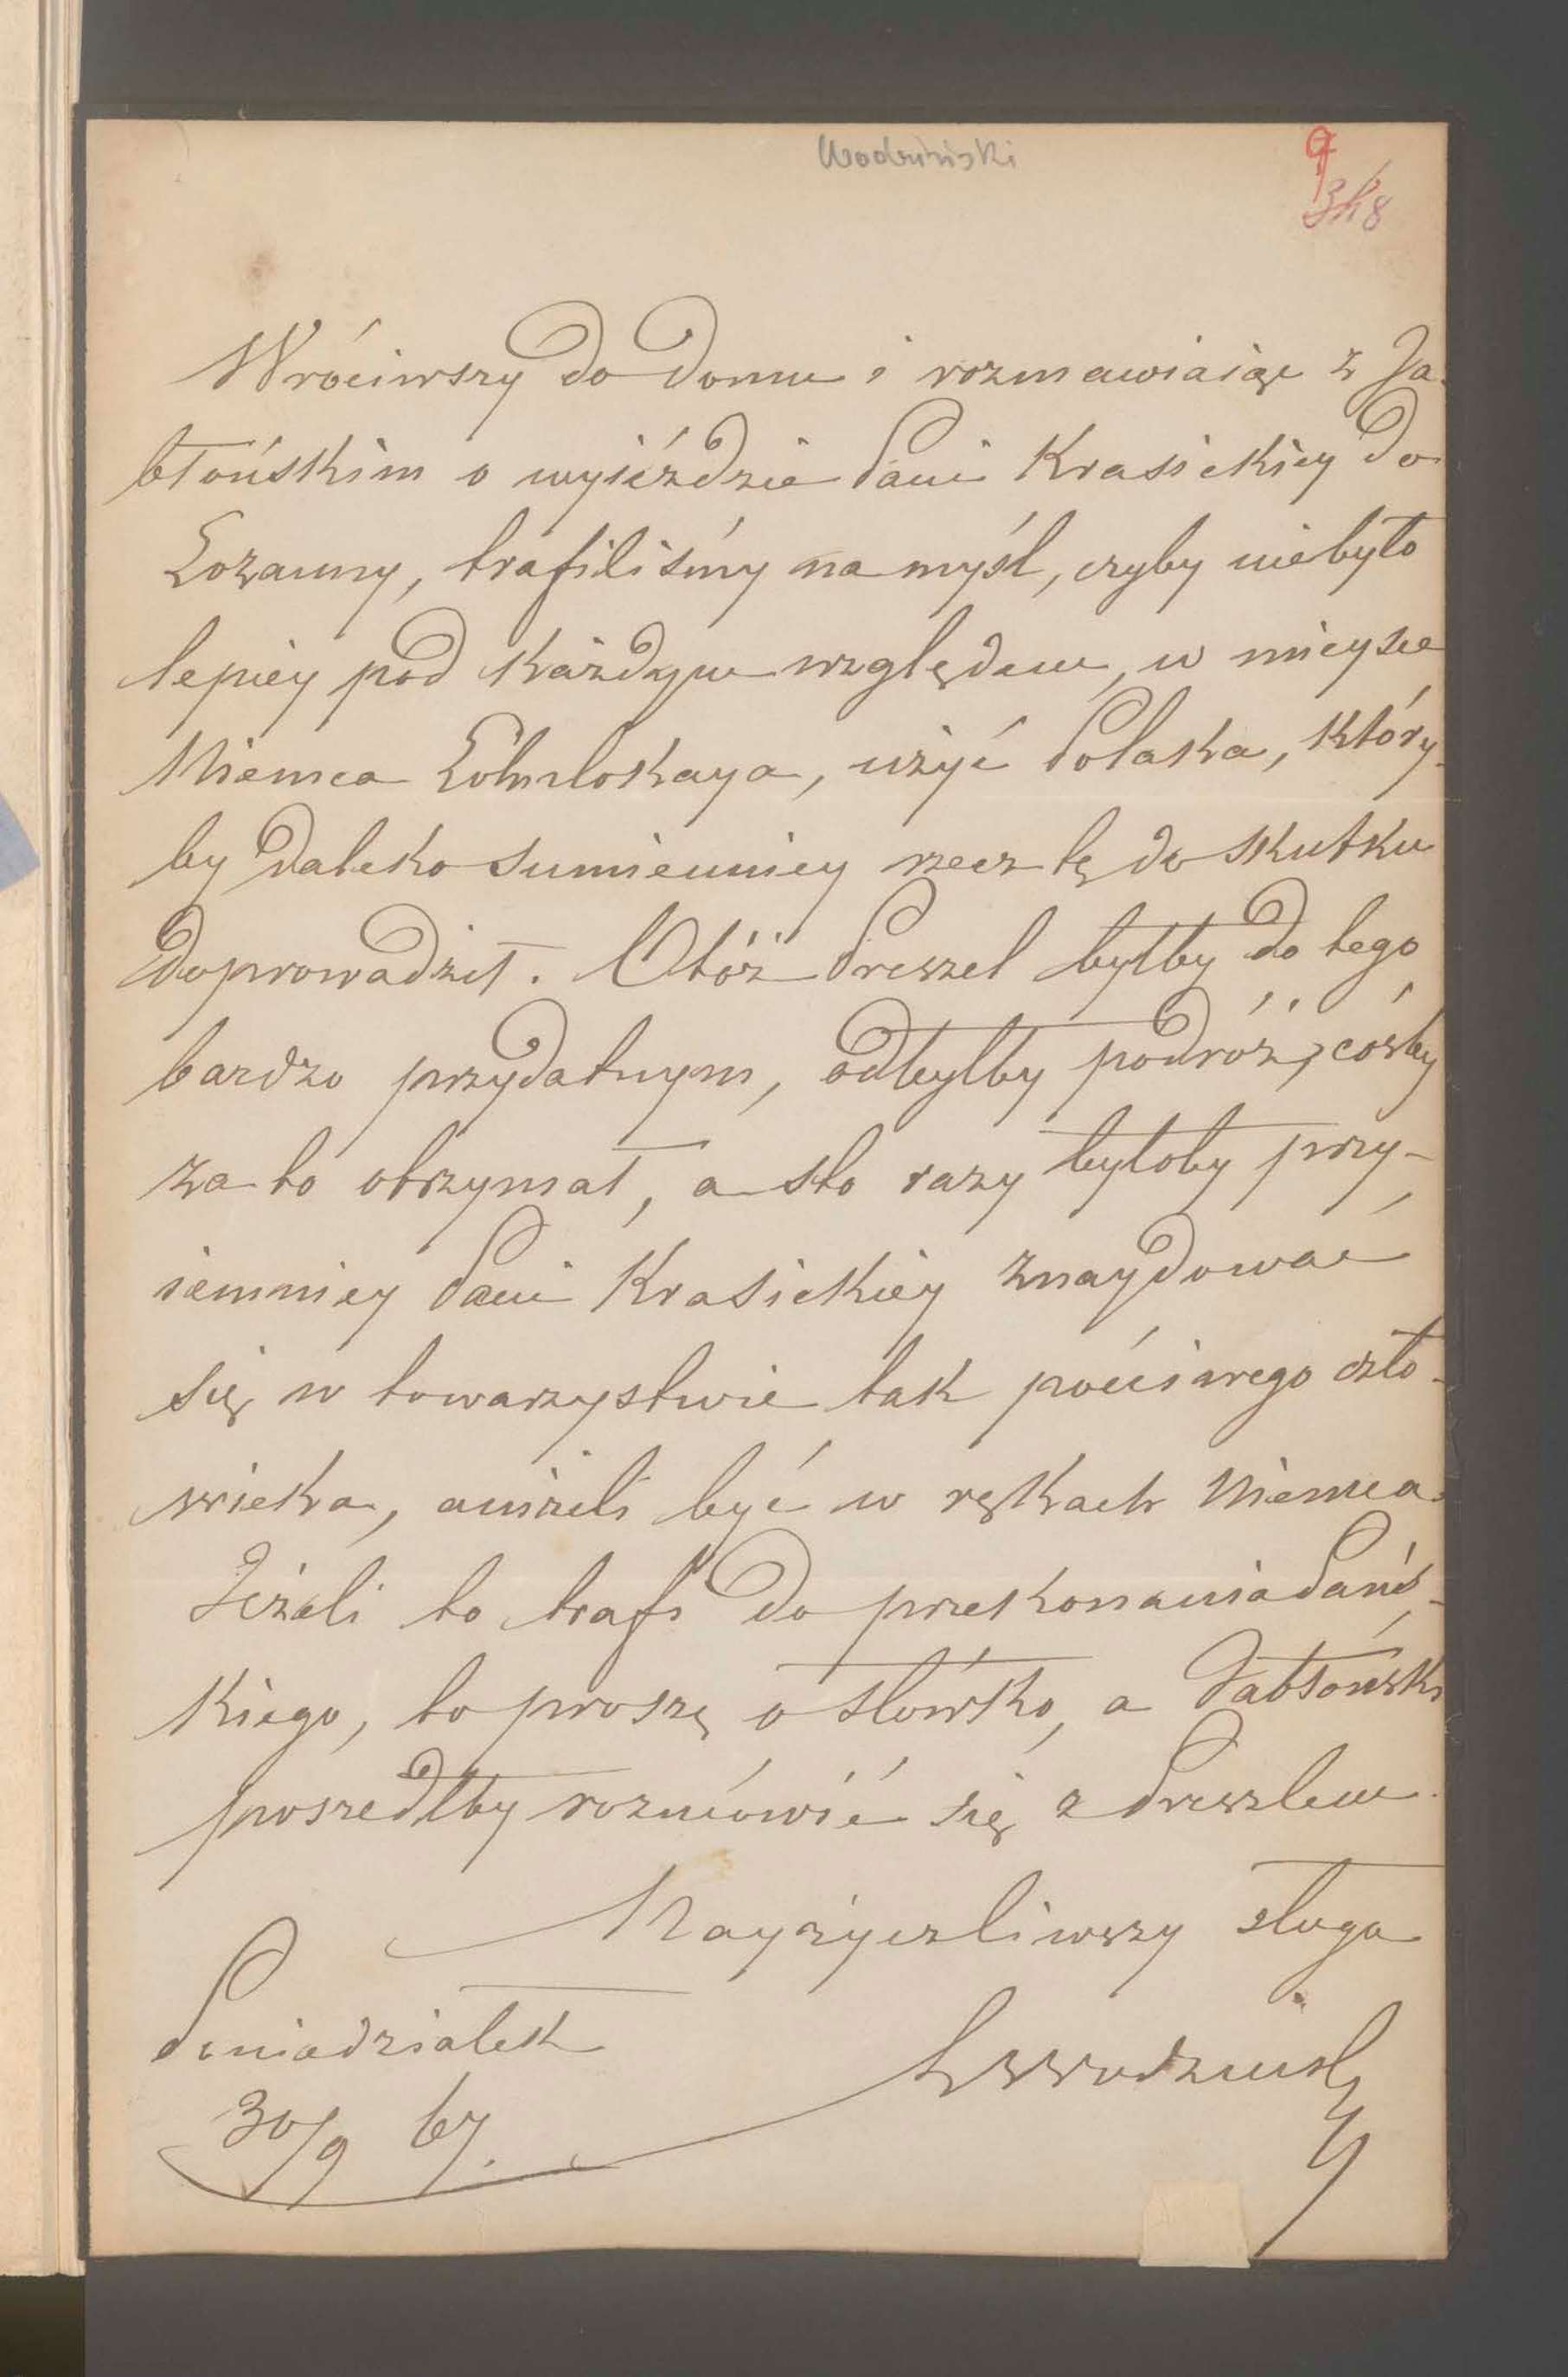 Wodziński
9
348
Wróciwszy do domu i rozmawiaiąc z Ja-
błońskim o wyieździe Pani Krasickiey do
Lozanny, trafiliśmy na myśl, czyby niebyło
lepiey pod każdym względem, w mieysce
Niemca użyć Polaka, który-
by daleko sumienniey rzecz tę do skutku
doprowadził. Otóż Preszel byłby do tego
bardzo przydatnym, odbyłby podróż, cośby
za to otrzymał, a sto razy byłoby przy-
iemniey Pani Krasickiey znaydować
się w towarzystwie tak poćciwego czło-
wieka, aniżeli być w rękach Niemca.
Jeżeli to trafi do przekonania Pańs-
kiego, to proszę o słówko, a Jabłoński
poszedłby rozmówić się z Preszlem.
Nayżyczliwszy sługa
Poniedziałek
Wodziński
30/9 67.